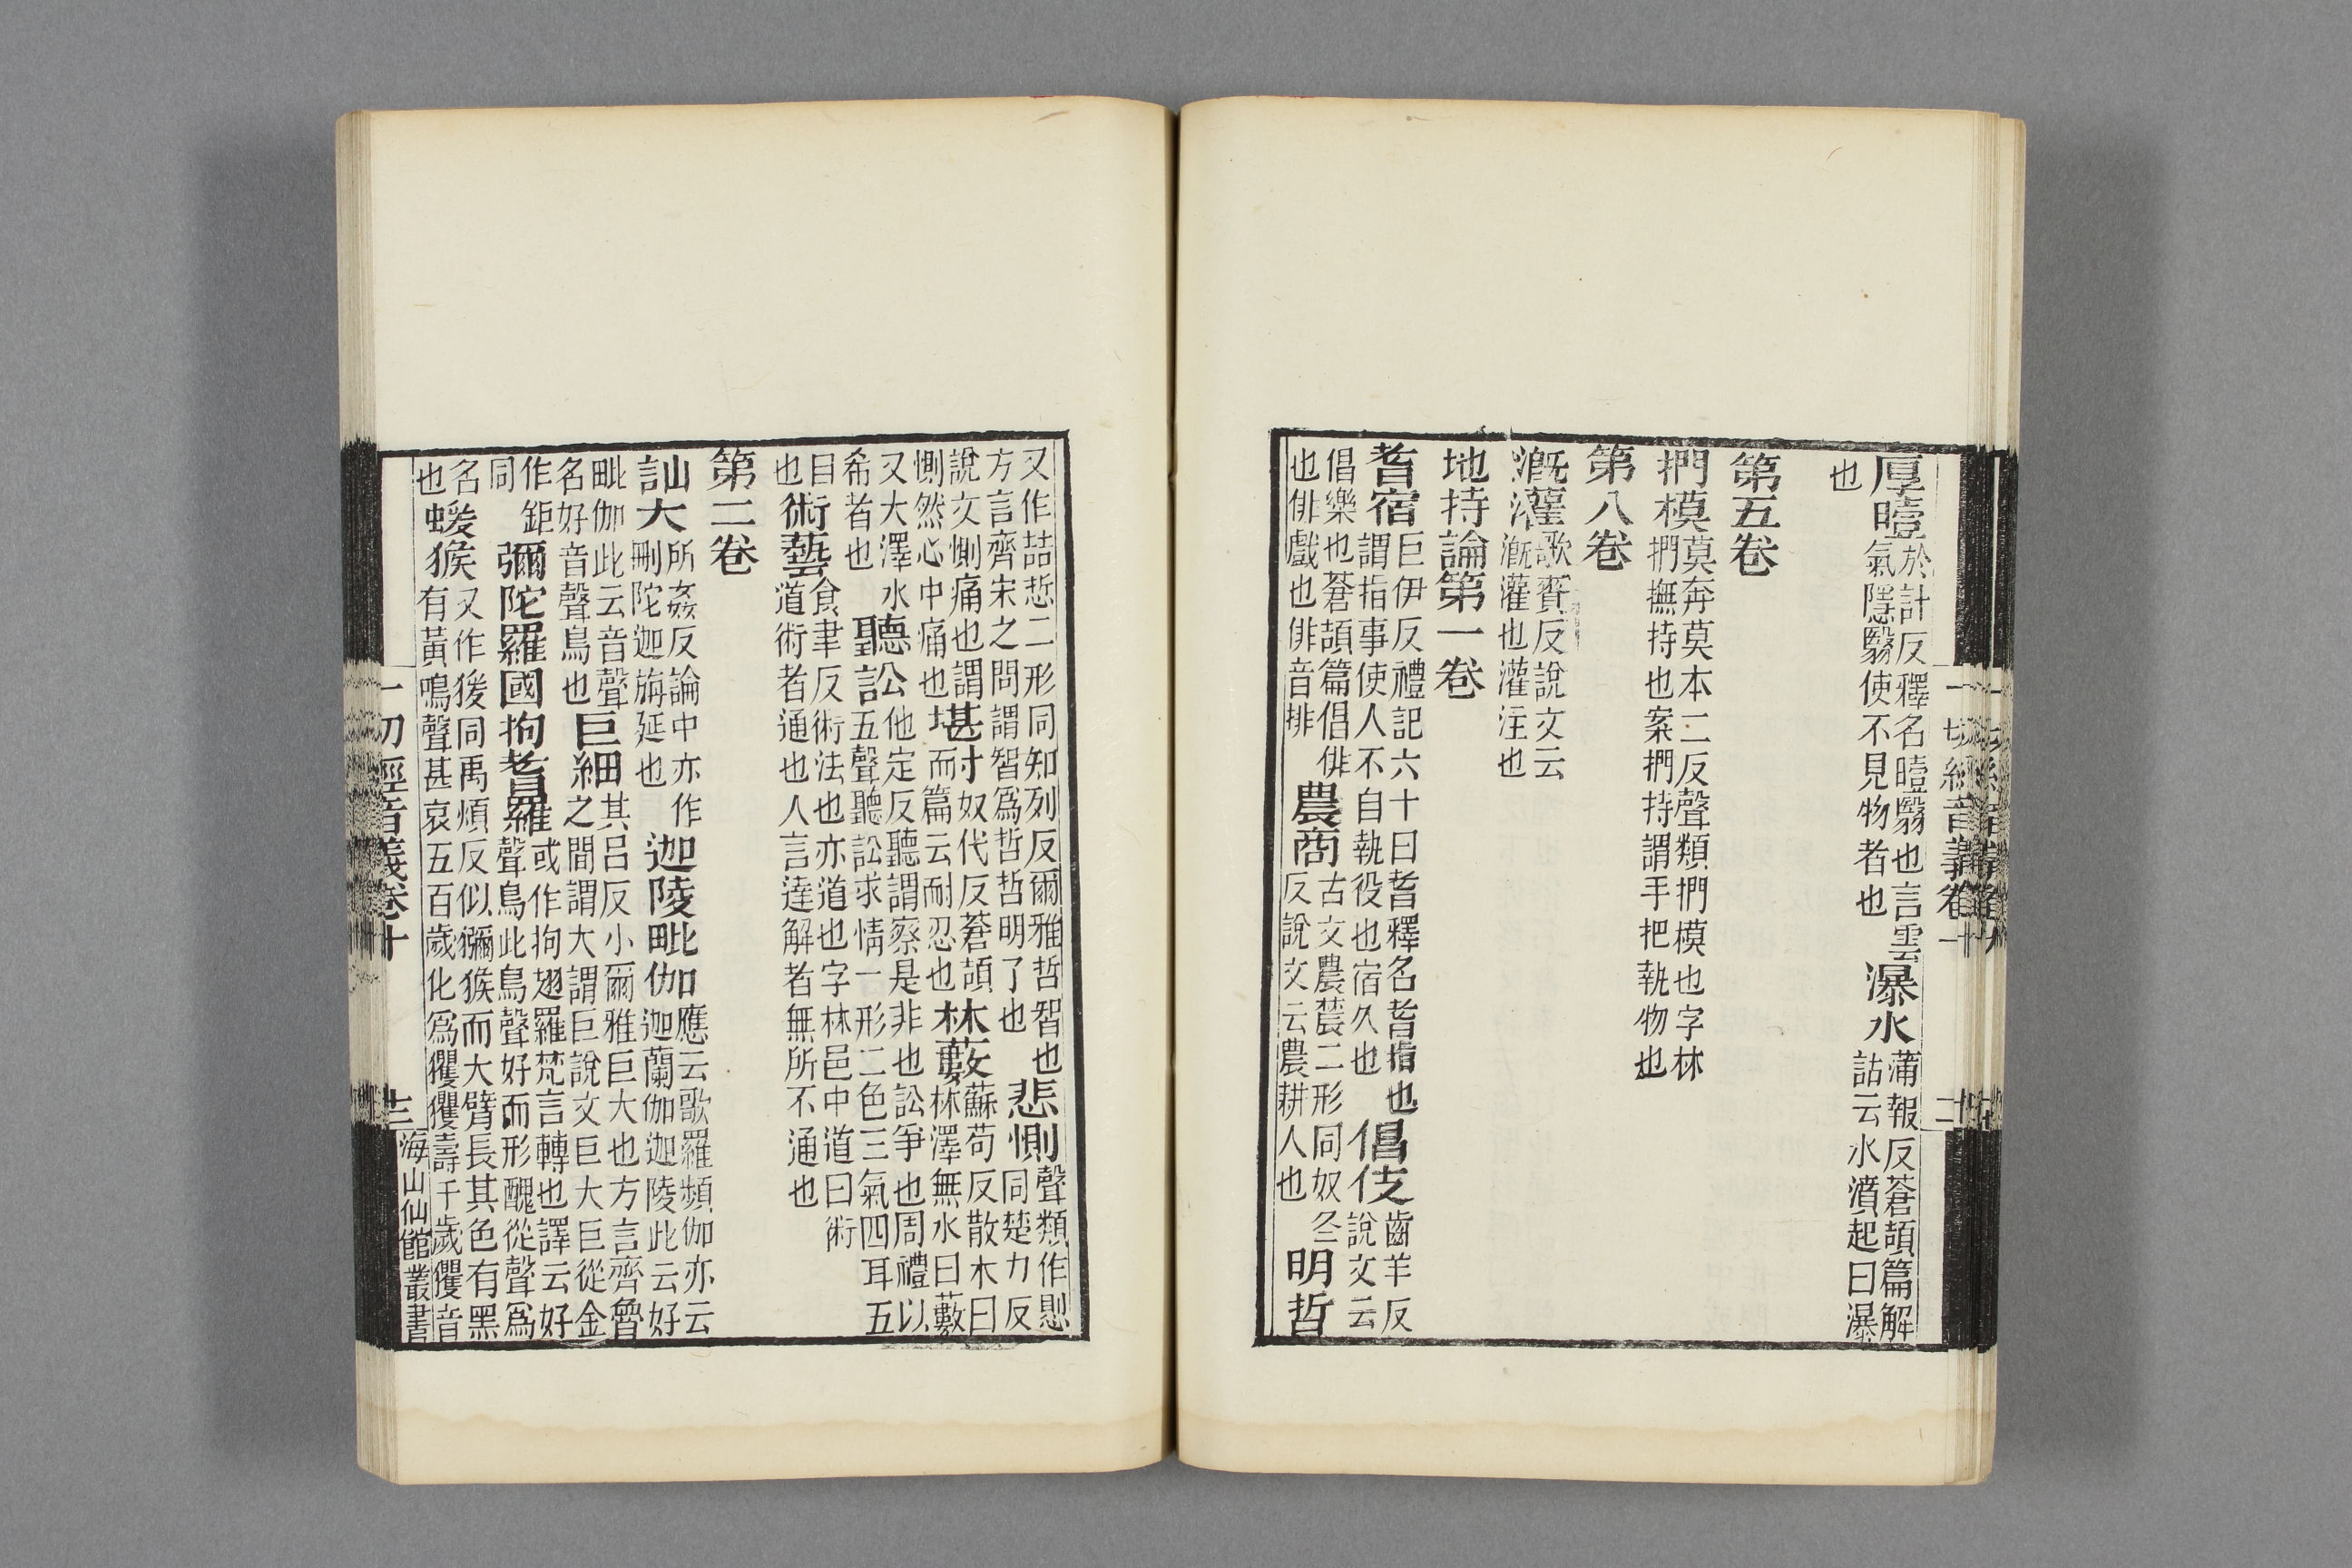 厚曀於計反釋名曀翳也言雲氣隱翳使不見物者也瀑水蒲報反蒼頡篇解詁云水濆起曰瀑
也
第五卷
捫模莫奔莫本二反聲類捫模也字林捫撫持也案捫持謂手把執物也
第八卷
溉灌歌賷反說文云溉灌也灌注也
地持論第一卷
耆宿巨伊反禮記六十曰耆釋名耆指也謂指事使人不自執役也宿久也倡伎齒羊反說文云
倡樂也蒼頡篇倡俳也俳戲也俳音排農商古文農䢉二形同奴冬反說文云農耕人也明哲
又作喆悊二形同知列反爾雅哲智也方言齊宋之間謂智為哲哲明了也悲惻聲類作㥽同楚力反
說文惻痛也謂惻然心中痛也堪耐奴代反蒼頡篇云耐忍也林藪蘇苟反散木曰林澤無水曰藪
又大澤水希者也聽訟他定反聽謂察是非也訟爭也周禮以五聲聽訟求情一形二色三氣四耳五
目術藝食聿反術法也亦道也字林邑中道曰術道術者通也人言達解者無所不通也
也
第二卷
訕大所姦反論中亦作刪陀迦旃延也迦陵毗伽應云歌羅頻伽亦云迦蘭伽迦陵此云好
毗伽此云音聲名好音聲鳥也巨細其呂反小爾雅巨大也方言齊魯之間謂大謂巨說文巨大巨從金
作鉅同彌陀羅國拘耆羅或作拘翅羅梵言轉也譯云好聲鳥此鳥聲好而形醜從聲為
名蝯猴又作猨同禹煩反似獼猴而大臂長其色有黑有黃鳴聲甚哀五百歲化為玃玃壽千歲玃音
也
一切經音義卷十
十二
一切經音義卷十
十三
海山仙館叢書